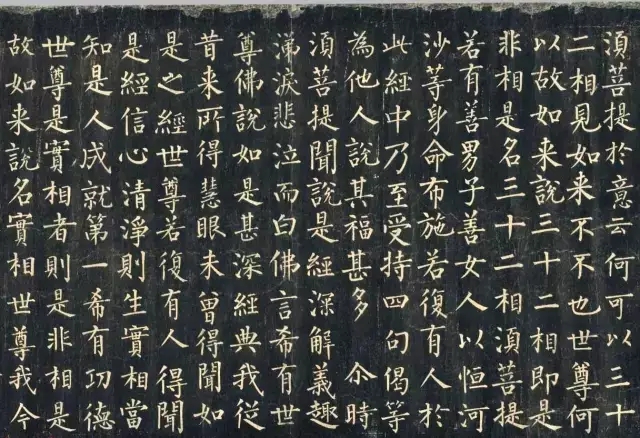 須菩提於意云何可以三十
二相見如來不不也世尊何
以故如來說三十二相即是
非相是名三十二相須菩提
若有善男子善女人以恒河
沙等身命布施若復有人於
此經中乃至受持四句偈等
為他人說其福甚多 尒時
須菩提聞說是經深解義趣
涕淚悲泣而白佛言希有世
尊佛說如是甚深經典我從
昔來所得慧眼未曾得聞如
是之經世尊若復有人得聞
是經信心清淨則生實相當
知是人成就第一希有功德
世尊是實相者則是非相是
故如來說名實相世尊我今